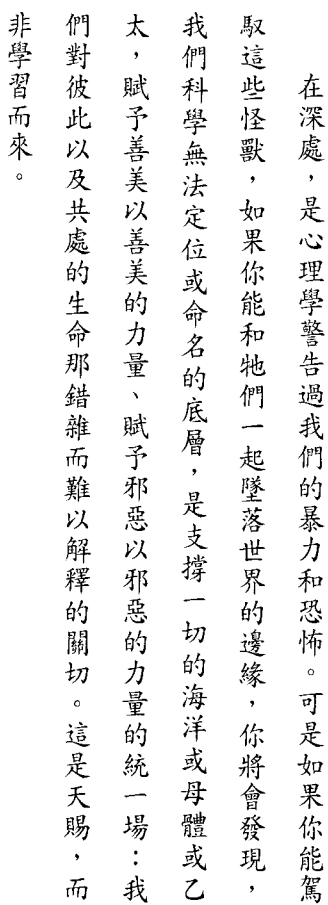 在深處，是心理學警告過我們的暴力和恐怖。可是如果你能駕
馭這些怪獸，如果你能和牠們一起墜落世界的邊緣，你將會發現，
我們科學無法定位或命名的底層，是支撐一切的海洋或母體或乙
太，賦予善美以善美的力量、賦予邪惡以邪惡的力量的統一場：我
們對彼此以及共處的生命那錯雜而難以解釋的關切。這是天賜，而
非學習而來。